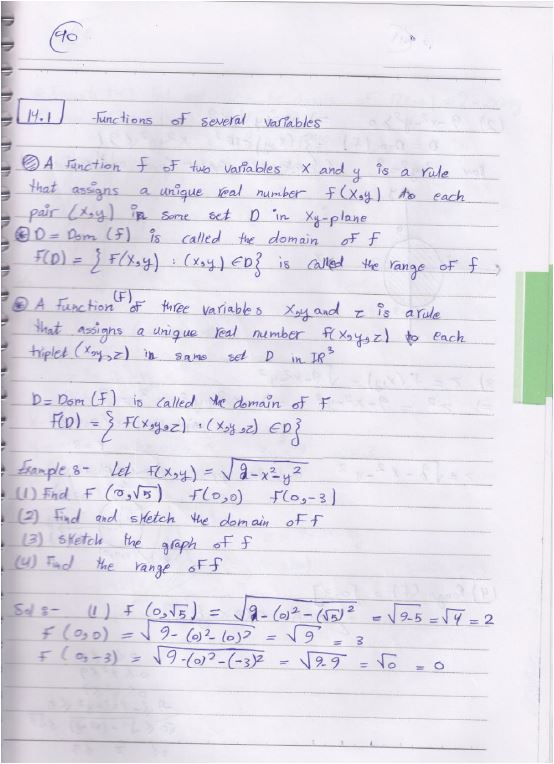 40
14.1 Functions of several variables
A Function f of two variables x and y is a rule
that assigns a unique real number f(x,y) to each
pair (x,y) in some set D in xy-plane
D = Dom (f) is called the domain of f
f(D) = { F(x,y) : (x,y) ∈ D} is called the range of f
A Function (F) of three variables x,y and z is a rule
that assigns a unique real number f(x,y,z) to each
triplet (x,y,z) in some set D in IR³
D = Dom (f) is called the domain of f
F(D) = { F(x,y,z) : (x,y,z) ∈ D}
Example :- Let f(x,y) = √9-x²-y²
(1) Find F (0,√5) f(0,0) f(0,-3)
(2) Find and sketch the domain of f
(3) sketch the graph of f
(4) Find the range of f
Sol :- (1) F (0,√5) = √9-(0)²-(√5)² = √9-5 = √4 = 2
f (0,0) = √9-(0)²-(0)² = √9 = 3
f (0,-3) = √9-(0)²-(-3)² = √9-9 = √0 = 0